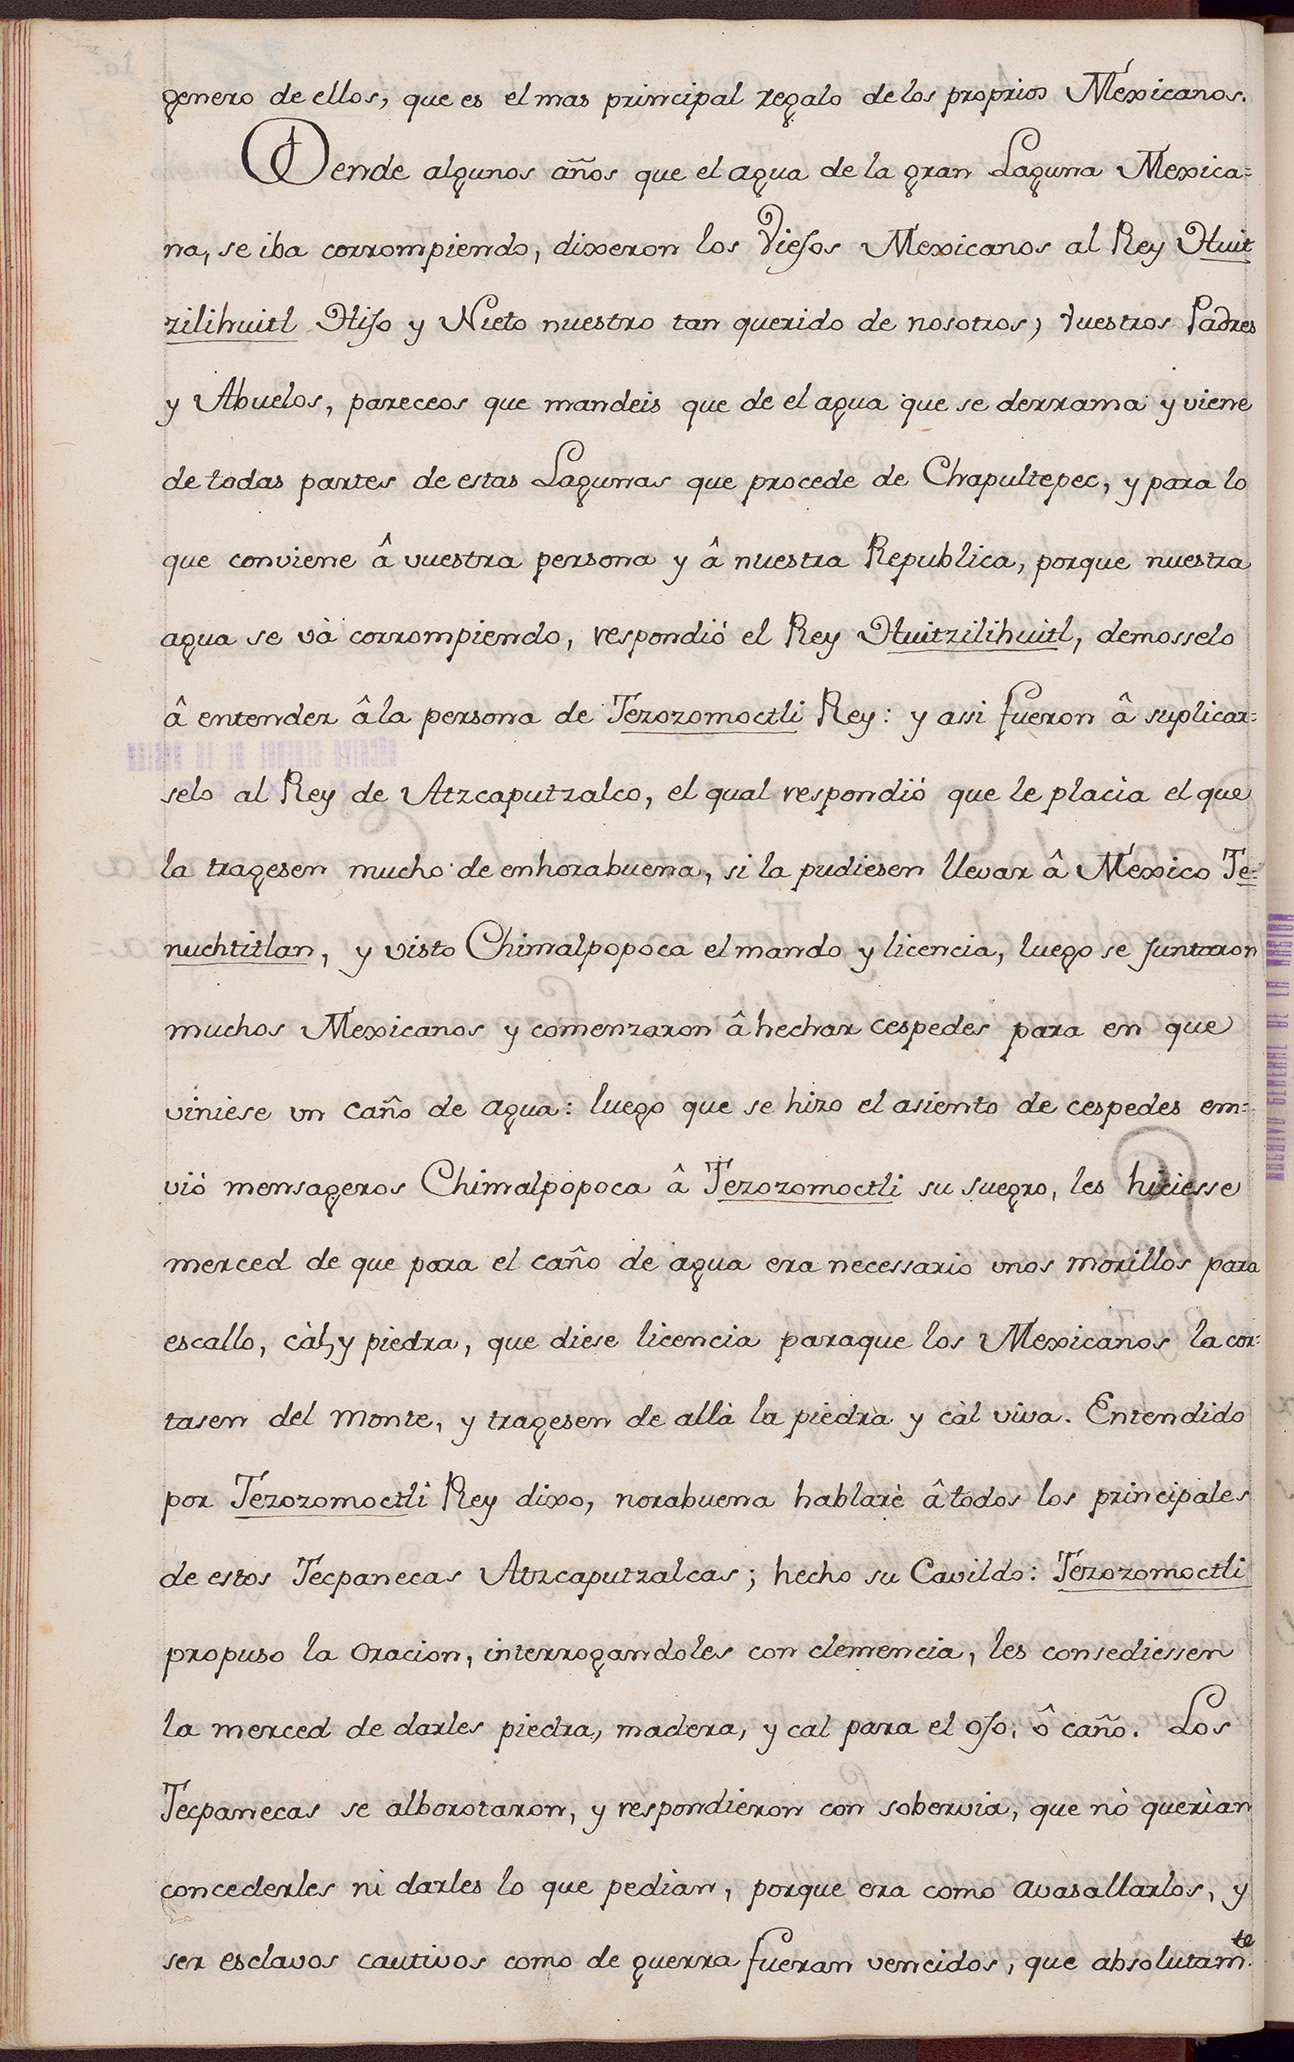 genero de ellos, que es el mas principal regalo de los proprios Méxicanos.
Dende algunos años que el agua de la gran Laguna Mexica=
na, se iba corrompiendo, dixeron los Viejos Mexicanos al Rey Huit
zilihuitl Hijo y Nieto nuestro tan querido de nosotros, vuestros Padres
y Abuelos, pareceos que mandeis que de el agua que se derrama y viene
de todas partes de estas Lagunas que procede de Chapultepec, y para lo
que conviene â vuestra persona y â nuestra Republica, porque nuestra
agua se và corrompiendo, respondió el Rey Huitzilihuitl, demosselo
â entender â la persona de Tezozomoctli Rey: y assi fueron â suplicar=
selo al Rey de Atzcaputzalco, el qual respondió que le placia el que
la tragesen mucho de enhorabuena, si la pudiesen llevar â México Te=
nuchtitlan, y visto Chimalpopoca el mando y licencia, luego se juntaron
muchos Mexicanos y comenzaron â hechar cespedes para en que
viniese un caño de agua: luego que se hizo el asiento de cespedes em=
vió mensageros Chimalpopoca â Tezozomoctli su suegro, les hiciesse
merced de que para el caño de agua era necessario unos morillos para
escallo, càl, y piedra, que diese licencia paraque los Mexicanos la cor=
tasen del monte, y tragesen de allà la piedra y càl viva. Entendido
por Tezozomoctli Rey dixo, norabuena hablarè â todos los principales
de estos Tecpanecas Atzcaputzalcas; hecho su Cavildo: Tezozomoctli
propuso la oracion, interrogandoles con clemencia, les consediessen
la merced de darles piedra, madera, y cal para el ojo, ô caño. Los
Tecpanecas se alborotaron, y respondieron con sobervia, que nò querìan
concederles ni darles lo que pedian, porque era como avasallarlos, y
ser esclavos cautivos como de guerra fueran vencidos, que absolutam.te
ARCHIVO GENERAL DE LA NACION